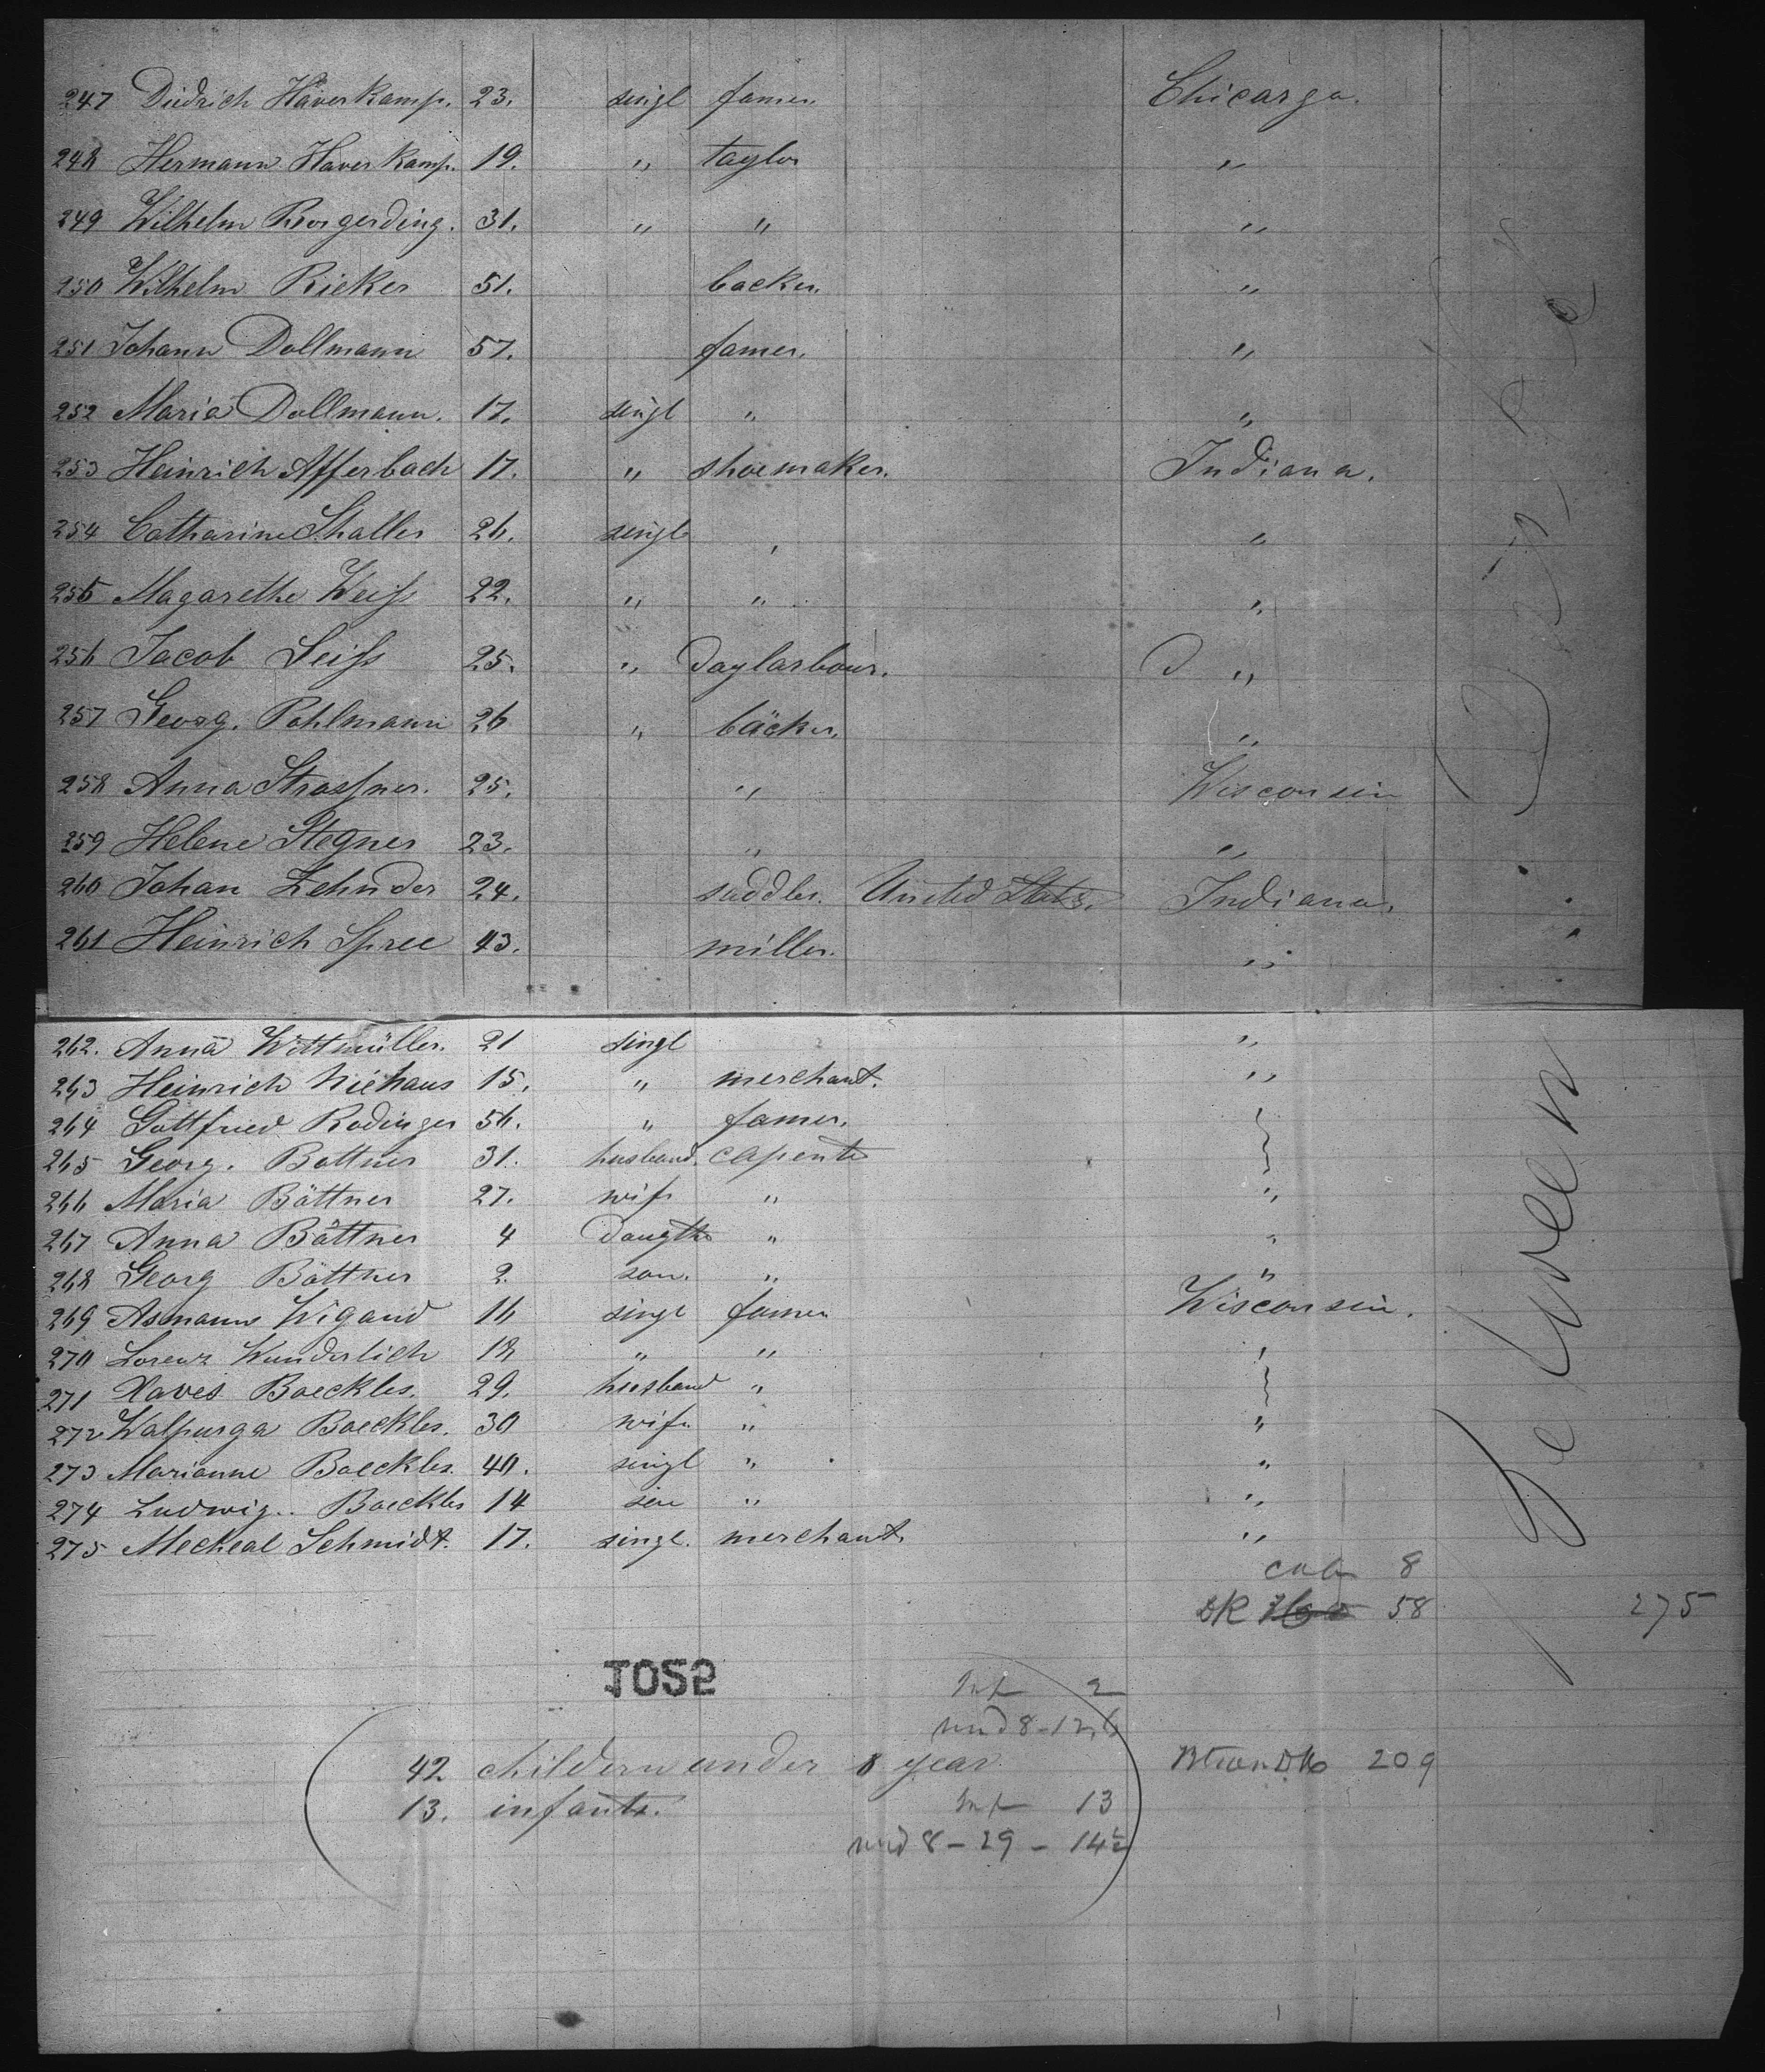 247 Diedrich Haverkamp. 23. singl famer. Chicargo.
248 Hermann Haverkamp. 19. " taylor "
249 Wilhelm Borgerding. 31. " " "
250 Wilhelm Rieker 51. backer. "
251 Johann Dollmann 57. famer. "
252 Maria Dollmann. 17. singl " "
253 Heinrich Afferbach 17. " shoemaker. Indiana.
254 Catharine Shaller 26. singl " "
255 Magarethe Weiſs 22. " " "
256 Jacob Seiſs 25. " Daylarbour. "
257 Georg. Pohlmann 26 " bäcker. "
258 Anna Strassner. 25. " Wisconsin
259 Helene Stegner 23. " "
260 Johan Zehnder 24. saddler. United States. Indiana.
261 Heinrich Spree 43. miller. "
262. Anna Wittmüller. 21 singl "
263 Heinrich Niehaus 15. " merchant. "
264 Gottfried Rodinger 56. " famer.
265 Georg. Bottner 31. husband. capenter
266 Maria Böttner 27. wife " "
267 Anna Böttner 4 Daugther " "
268 Georg Böttner 2. son. " "
269 Asmann Wigand 16 singl famer Wisconsin.
270 Lorenz Wunderlich 18 " " "
271 Xaver Baeckler. 29. husband "
272 Walpurga Baeckler. 30 wife " "
273 Marianne Baeckler. 40. singl " "
274 Ludwig.. Baeckler 14 " "
275 Mecheal Schmidt. 17. singl. merchant. "
Between
cab 8
58 275
Inf 2
und 8 - 12, 6
42 childern under 8 year. 209
13. infants. Inf 13
und 8 - 29 - 14½